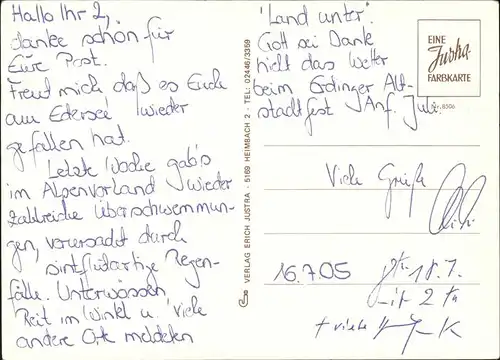 Hallo Ihr 2,
danke schön für
Eure Post.
Freut mich daß es Euch
am Edersee wieder
gefallen hat.
Letzte Woche gab's
im Alpenvorland wieder
zahlreiche Überschwemmun-
gen, verursacht durch
sintflutartige Regen-
fälle. Unterwössen
Reit im Winkl u. viele
andere Orte meldeten
"Land unter".
Gott sei Dank
hielt das Wetter
beim Erdinger Alt-
stadtfest Anf. Juli.
Viele Grüße
16.7.05
18.7.
+ viele
VERLAG ERICH JUSTRA · 5169 HEIMBACH 2 · TEL: 02446/3359
EINE
Justra
FARBKARTE
Nr. 8506